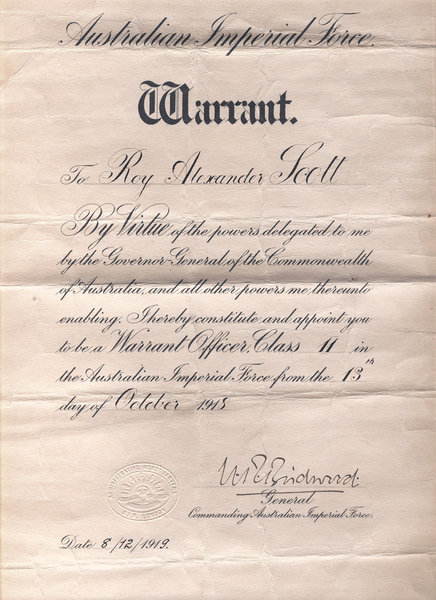 Australian Imperial Force.
Warrant.
To Roy Alexander Scott
By Virtue of the powers delegated to me
by the Governor-General of the Commonwealth
of Australia, and all other powers me thereunto
enabling. I hereby constitute and appoint you
to be a Warrant Officer, Class 11 in
the Australian Imperial Force from the 13th
day of October 1918
W R Birdwood.
General
Commanding Australian Imperial Force.
Date 8/12/1919.